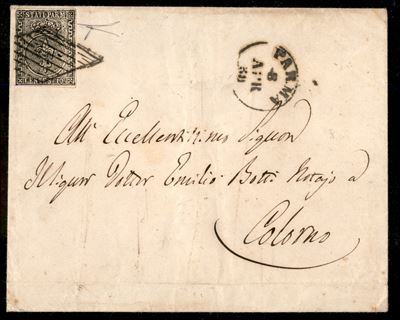 STATI PARM.
PARMA
8
APR
All' Eccellentissimo Signor
Il Signor Dottor Emilio Botti Notajo a
Colorno